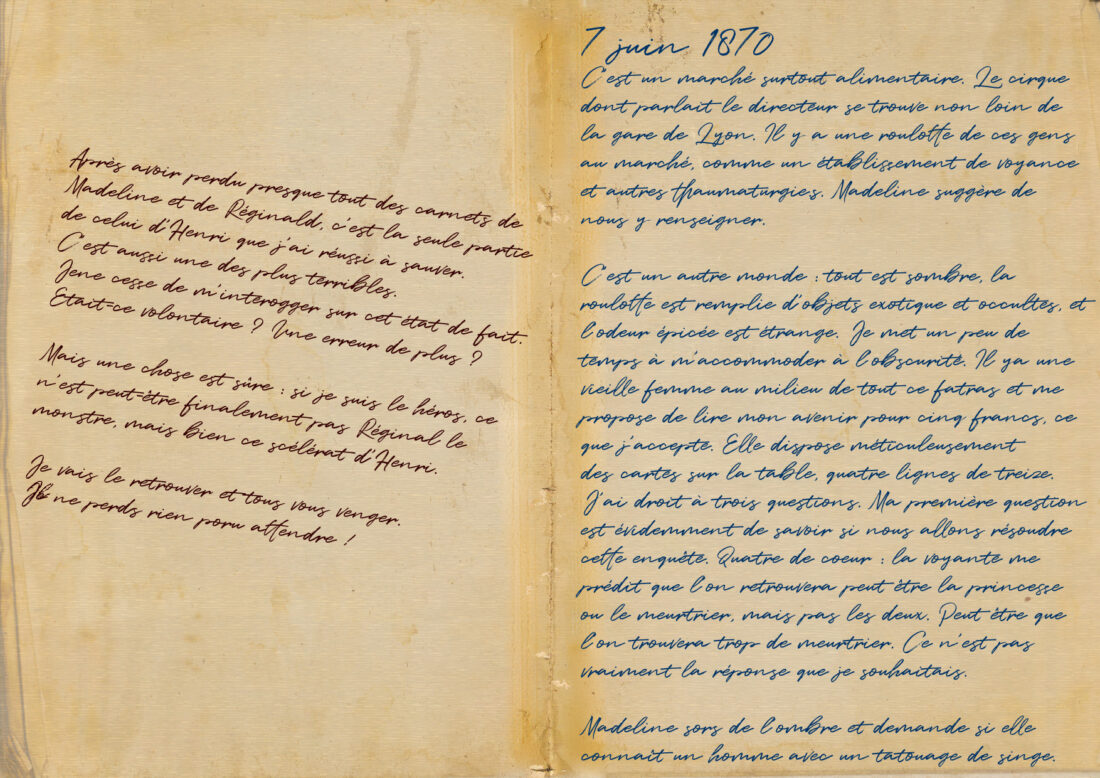 Après avoir perdu presque tout des carnets de
Madeline et de Réginald, c'est la seule partie
de celui d'Henri que j'ai réussi à sauver.
C'est aussi une des plus terribles.
Jene cesse de m'interogger sur cet état de fait.
Etait-ce volontaire ? Une erreur de plus ?
Mais une chose est sûre : si je suis le héros, ce
n'est peut-être finalement pas Réginal le
monstre, mais bien ce scélérat d'Henri.
Je vais le retrouver et tous vous venger.
ne perds rien poru attendre !
7 juin 1870
C'est un marché surtout alimentaire. Le cirque
dont parlait le directeur se trouve non loin de
la gare de Lyon. Il y a une roulotte de ces gens
au marché, comme un établissement de voyance
et autres thaumaturgies. Madeline suggère de
nous y renseigner.
C'est un autre monde : tout est sombre, la
roulotte est remplie d'objets exotique et occultes, et
l'odeur épicée est étrange. Je met un peu de
temps à m'accommoder à l'obscurité. Il ya une
vieille femme au milieu de tout ce fatras et me
propose de lire mon avenir pour cinq francs, ce
que j'accepte. Elle dispose méticuleusement
des cartes sur la table, quatre lignes de treize.
J'ai droit à trois questions. Ma première question
est évidemment de savoir si nous allons résoudre
cette enquête. Quatre de coeur : la voyante me
prédit que l'on retrouvera peut être la princesse
ou le meurtrier, mais pas les deux. Peut être que
l'on trouvera trop de meurtrier. Ce n'est pas
vraiment la réponse que je souhaitais.
Madeline sors de l'ombre et demande si elle
connait un homme avec un tatouage de singe.